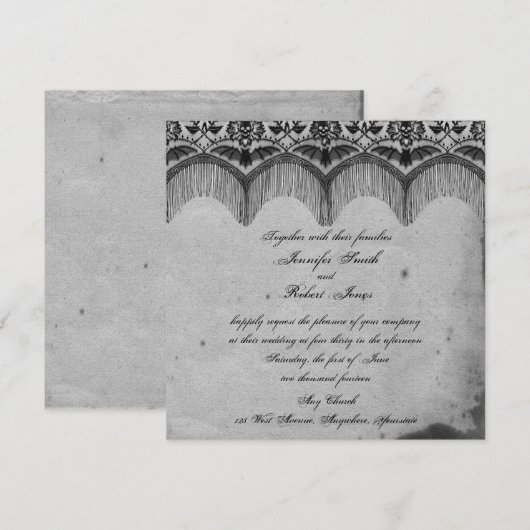 Together with their families
Jennifer Smith
and
Robert Jones
happily request the pleasure of your company
at their wedding at four thirty in the afternoon
Saturday, the first of June
two thousand fourteen
Any Church
123 West Avenue, Anywhere, Yourstate